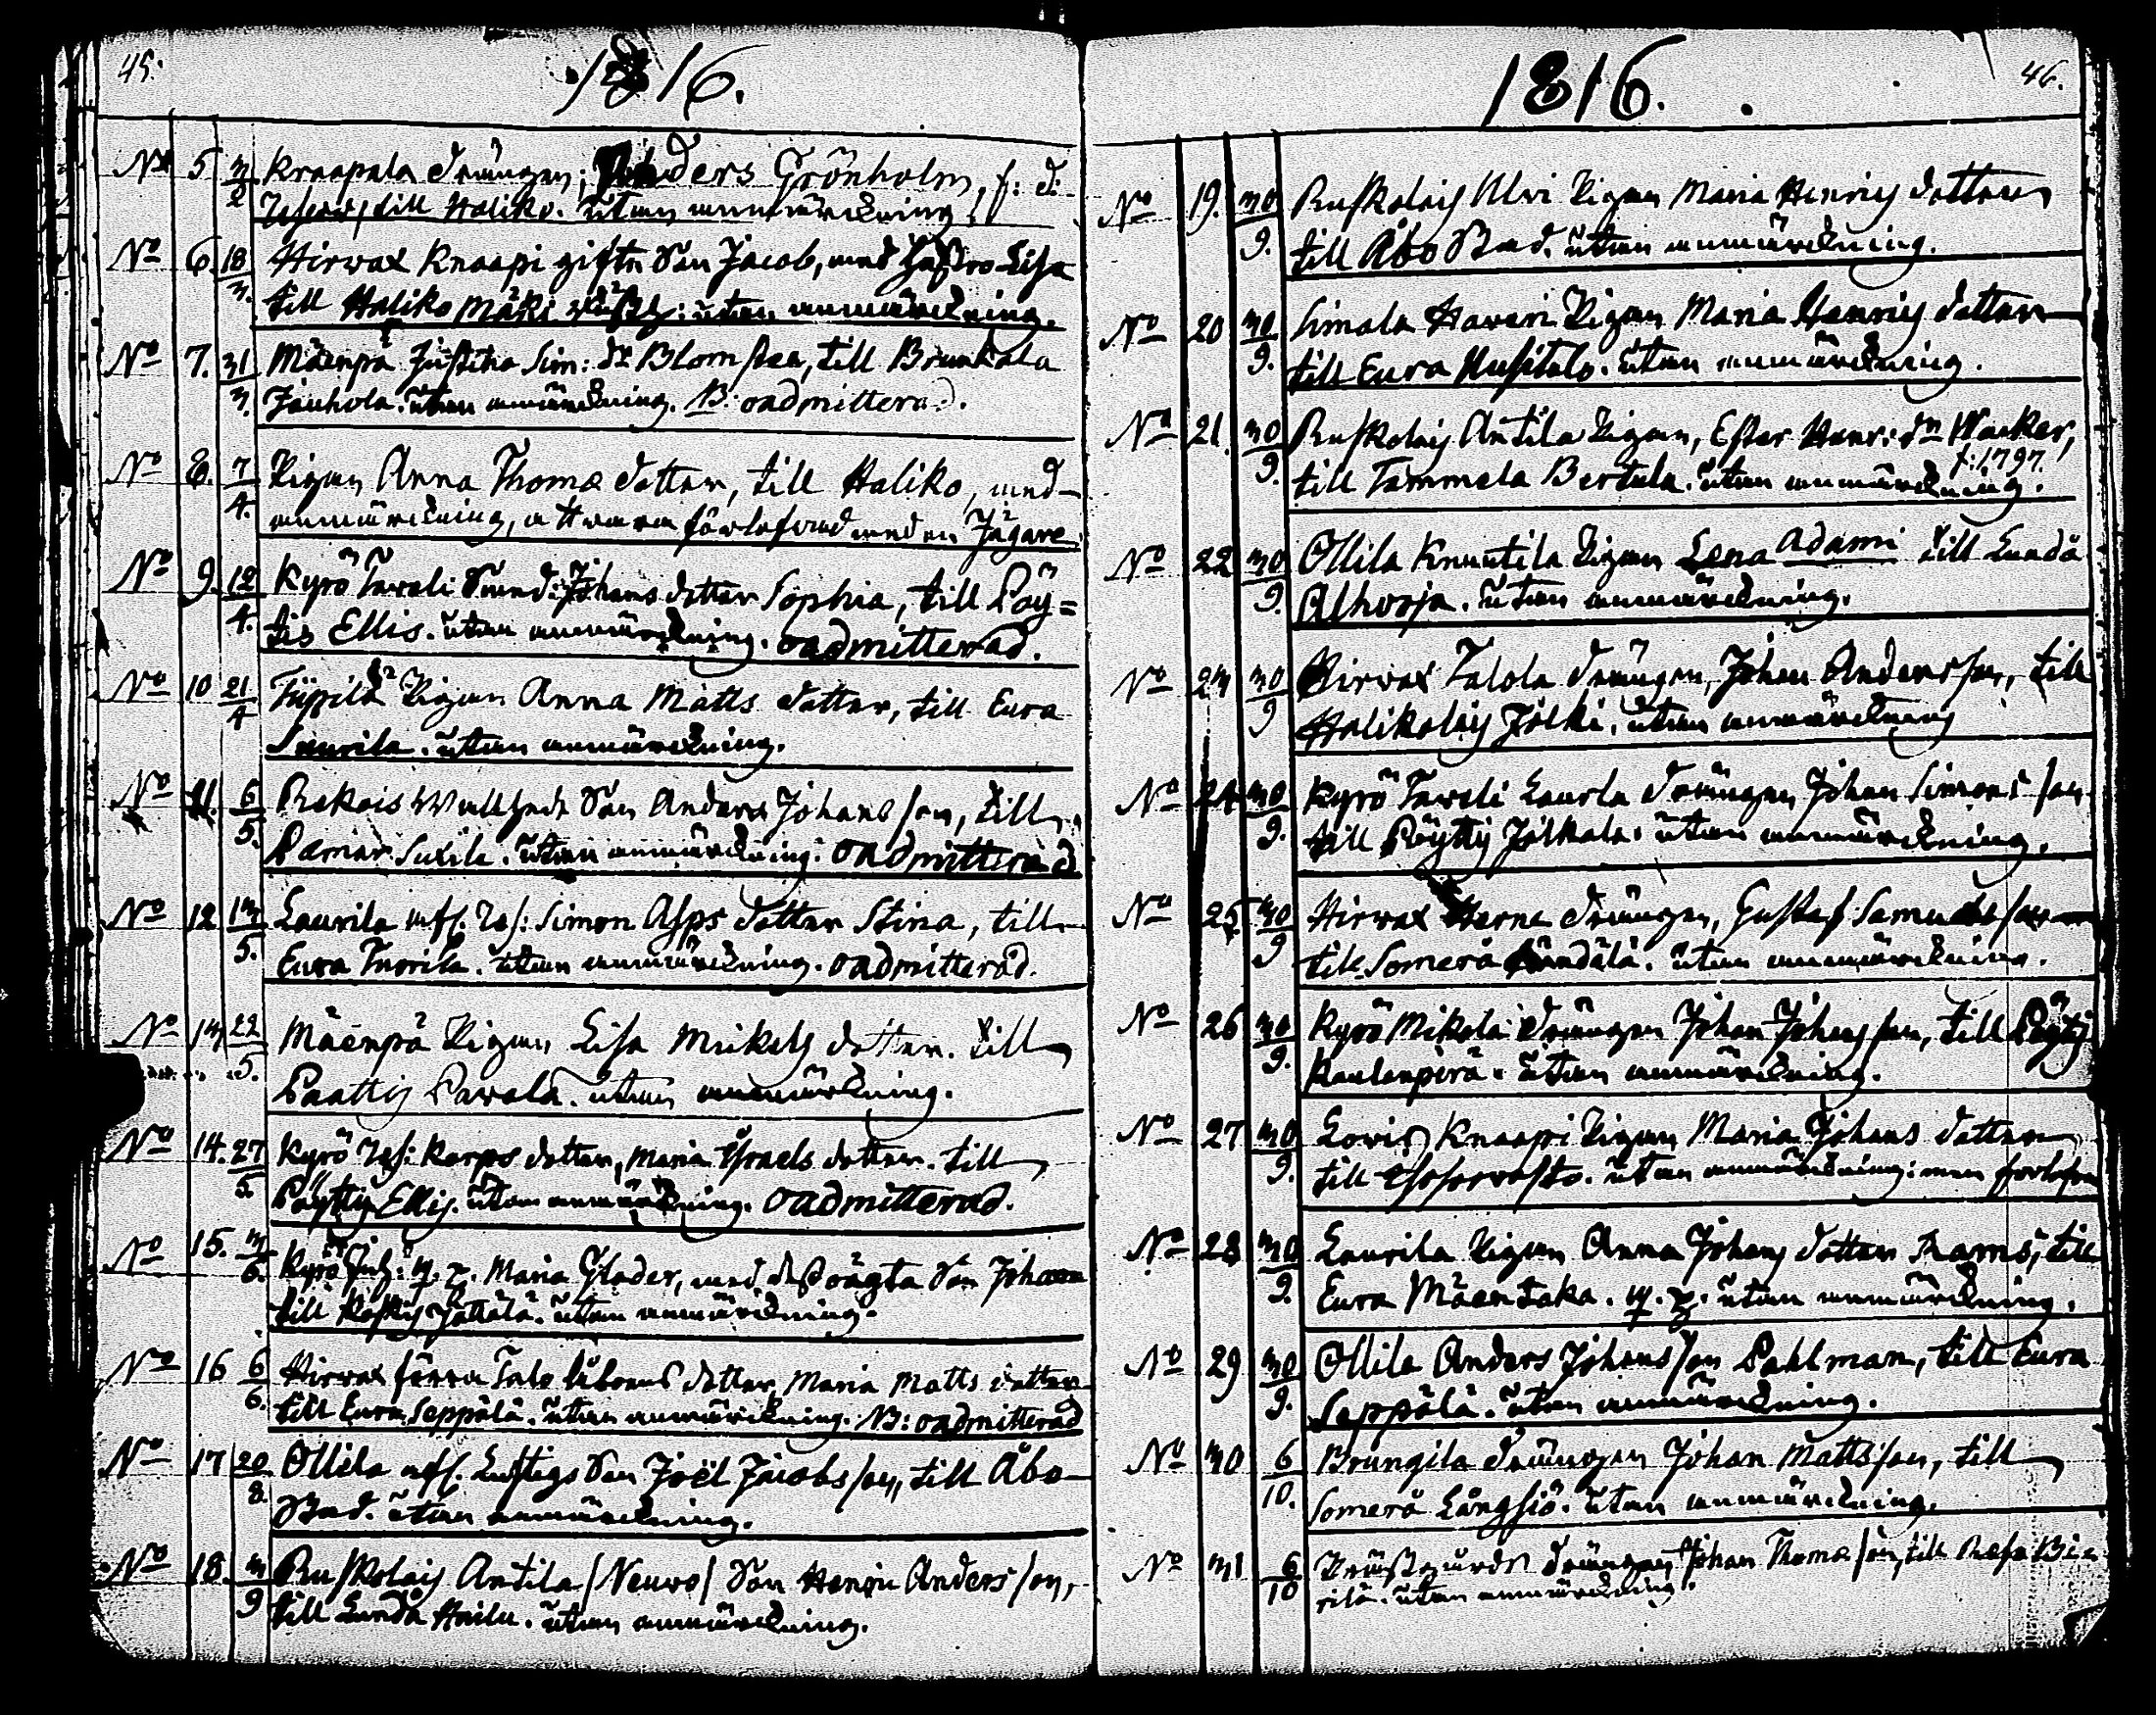 45.
1816.
No 5 3/2 Kraapala Drängen; Anders Grönholm, f: d:
till Haliko. utan anmärckning
No 6. 18/3. Hirwax Knaapi gifta Son Jacob, med Hustro Lisa
till Haliko Mäki : utan anmärckning.
No 7. 31/3. Mäenpä Justina Sim: dr Blom till
Jauhola. utan anmärckning. B: oadmitterad.
No 8. 7/4. Pigan Anna Thomæ dotter, till Haliko, med
anmärckning, att wara förlofwad med en Jägare
No 9. 12/4. Kyrö Taweli Sund: Johans dotter Sophia, till Pöy=
tis Ellis. utan anmärckning. oadmitterad.
No 10 21/4 Pigan Anna Matts dotter, till Eura
Laurila. utan anmärckning.
No 11. 6/5. Rekois Son Anders Johans son, till
Pemar utan anmärckning. oadmitterad
No 12 13/5. Laurila Simon Asps dotter Stina, till
Eura utan anmärckning. oadmitterad.
No 13 22/5. Mäenpä Pigan Lisa Mickels dotter. till
Paattis Pawela. utan anmärckning.
No 14. 27/5. Kyrö Korpo dotter, Maria Israels dotter. till
Pöyttis Ellis. utan anmärckning. oadmitterad.
No 15. 3/6. Kyrö q. p. Maria Glader, med dess oägta Son Johan
till Koskis utan anmärckning.
No 16 6/6. Hirwax förra Talo dotter, Maria Matts dotter
till Eura Seppälä. utan anmärckning. B: oadmitterad
No 17 20/8. Ollila Lustigs Son Joël Jacobs son, till Åbo
Stad. utan anmärckning.
No 18. 3/9 Ruskolais Antila /Neuwo/ Son Henric Anders son,
till Lundå utan anmärckning.
46.
1816.
No 19. 30/9. Ruskolais Ulvi Pigan Maria Henrics dotter
till Åbo Stad. utan anmärckning.
No 20 30/9. Simala Haveri Pigan Maria Henrics dotter
till Eura Uusitalo. utan anmärckning.
No 21. 30/9. Ruskolais Antila Pigan, Ester Henr: dr Wacker,
f: 1797.
till Tammela Bertula. utan anmärckning.
No 22 30/9. Ollila Knuutila Pigan Lena Adami till Lundå
Alhoja. utan anmärckning.
No 23 30/9 Hirwax Talola Drängen, Johan Anders son, till
Halikolais Jälki. utan anmärckning
No 24 30/9. Kyrö Taweli Laurla Drängen Johan Simons son
till Pöyttis Jälkala. utan anmärckning.
No 25 30/9 Hirwax Herne Drängen, Gustaf Samuels son
till Somerå utan anmärckning.
No 26 30/9. Kyrö Mikola Drängen Johan Johans son, till Pöytis
Kaulanperä. utan anmärckning.
No 27 30/9. Knaapi Pigan Maria Johans dotter
till utan anmärckning: men
No 28 30/9. Laurila Pigan Anna Johans dotter till
Eura Mäentaka. q. p. utan anmärckning.
No 29 30/9. Ollila Anders Johans son Pahlman, till Eura
Seppälä. utan anmärckning.
No 30 6/10. Brungila Drängen Johan Matts son, till
Somerå Långsiö. utan anmärckning.
No 31 6/10 Drängen Johan Thomæ son, till
rilä. utan anmärckning.